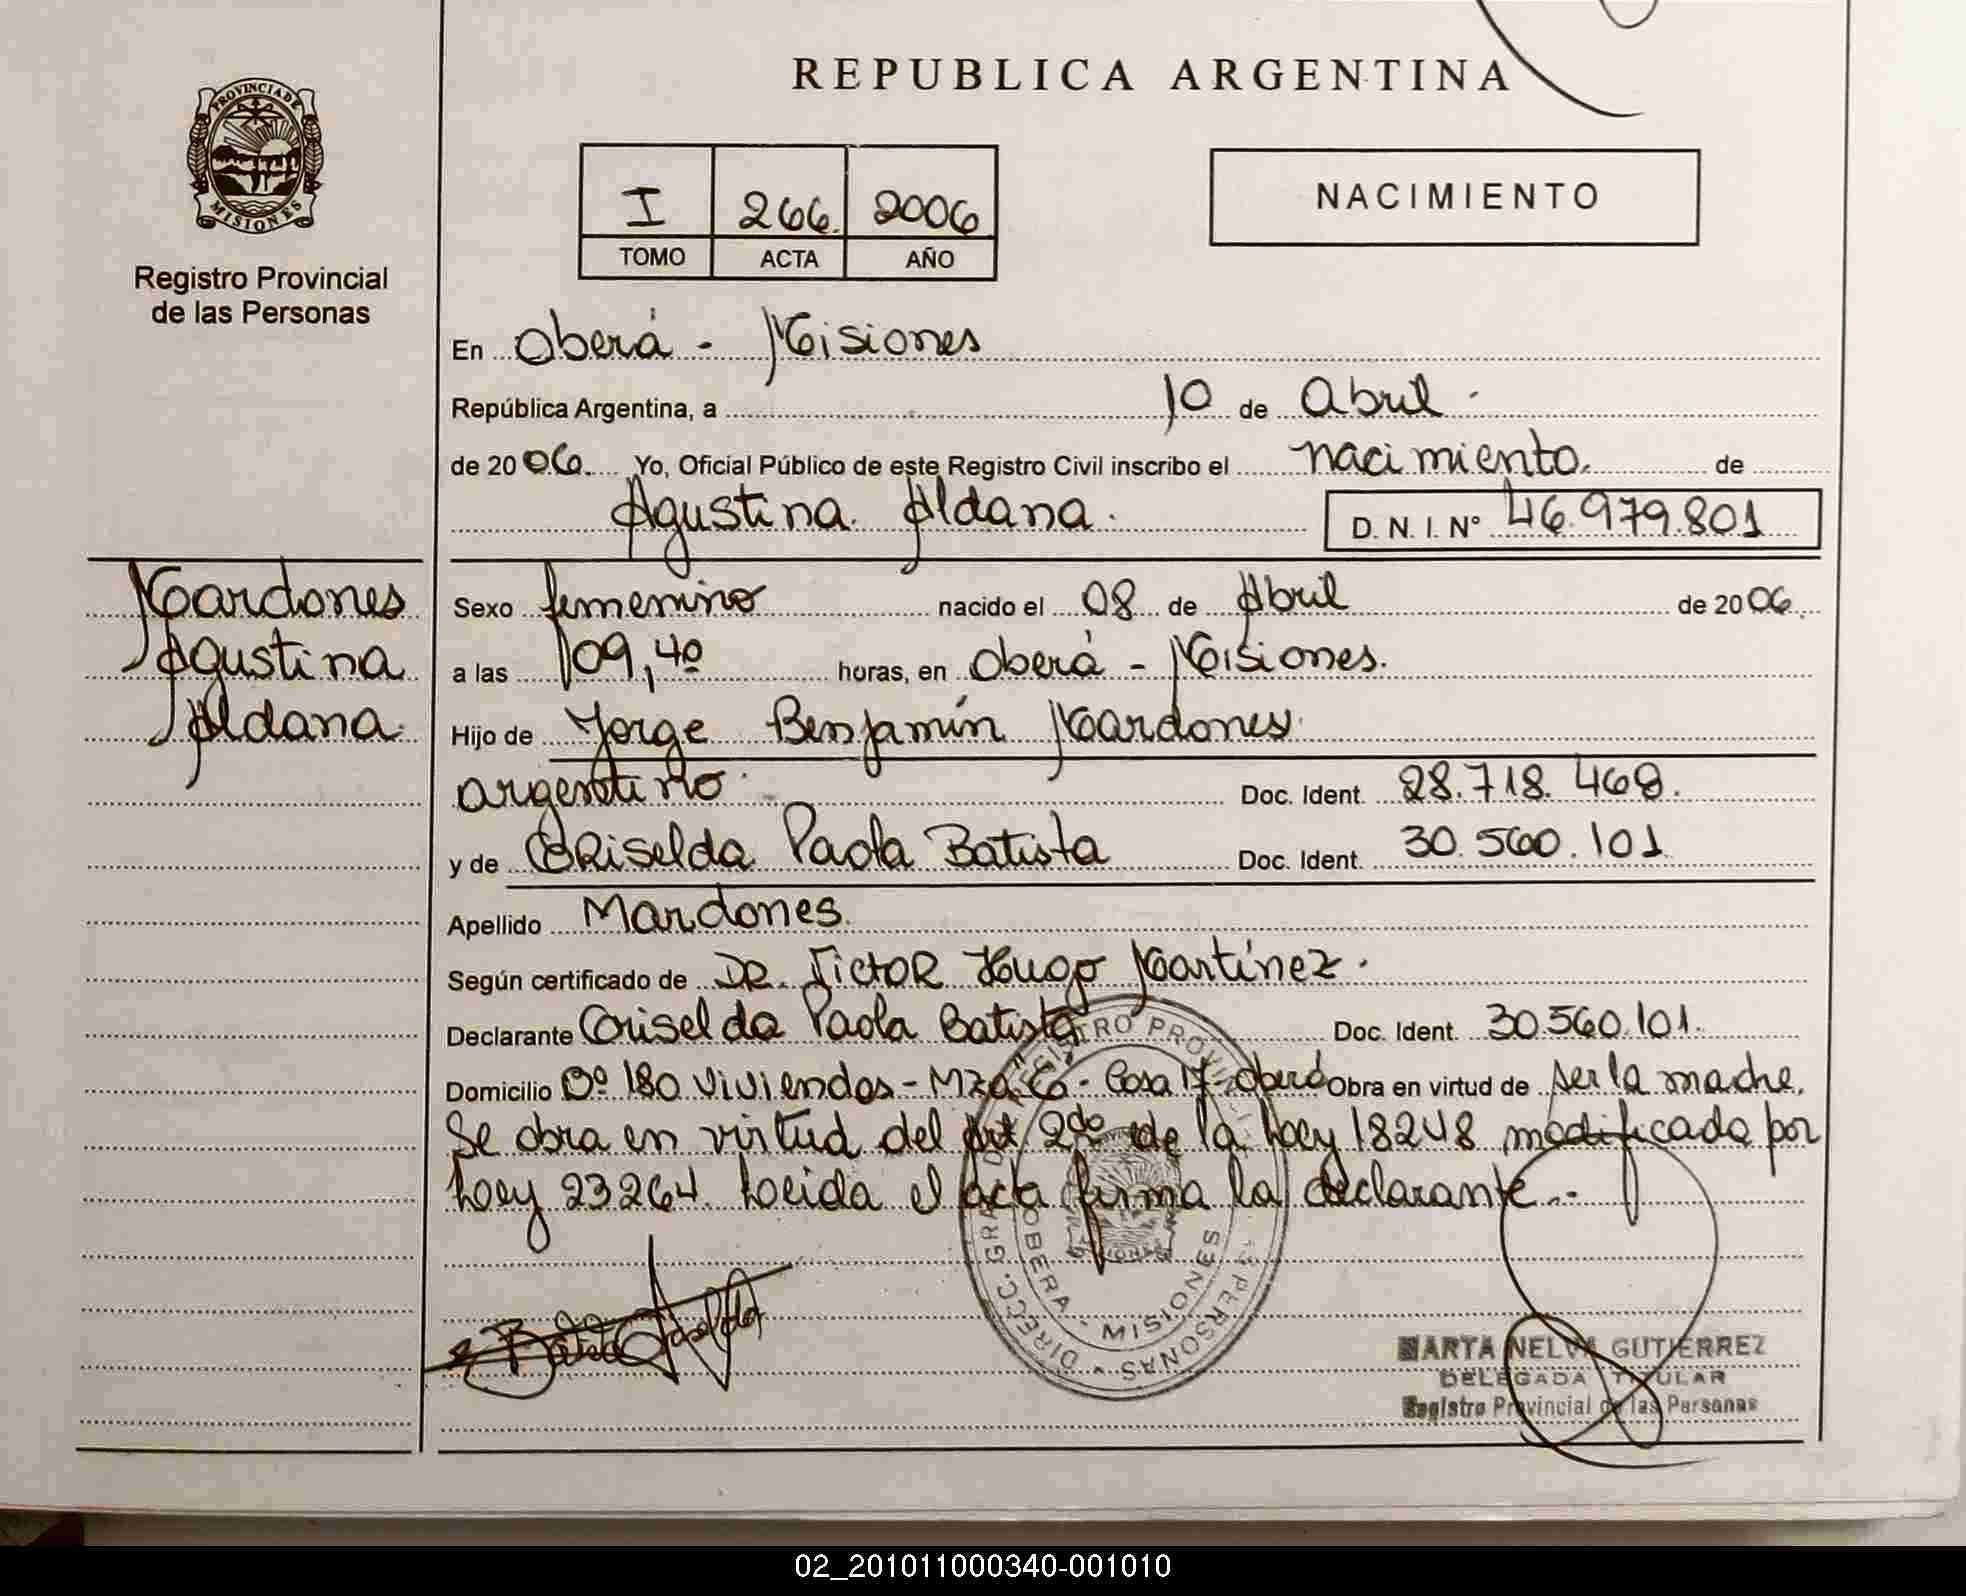 REPUBLICA ARGENTINA
PROVINCIA DE MISIONES
Registro Provincial
de las Personas
I 266. 2006
TOMO ACTA AÑO
NACIMIENTO
En Oberá - Misiones
República Argentina, a 10 de Abril.
de 2006. Yo, Oficial Público de este Registro Civil inscribo el nacimiento. de
Agustina Aldana. D. N. I. Nº 46.979.801
Mardones
Agustina
Aldana.
Sexo femenino nacido el 08 de Abril de 2006.
a las 09,40 horas, en Oberá - Misiones.
Hijo de Jorge Benjamín Mardones.
argentino. Doc. Ident. 28.718.468.
y de Griselda Paola Batista Doc. Ident. 30.560.101
Apellido Mardones.
Según certificado de DR. Victor Hugo Martínez.
Declarante Griselda Paola Batista Doc. Ident. 30.560.101.
Domicilio Bº 180 viviendas - Mza G - Casa 17 - Oberá Obra en virtud de ser la madre.
Se obra en virtud del Art. 2do de la Ley 18248 modificada por
Ley 23264. Leida el acta firma la declarante.-
DIRECC. GRAL. DEL REGISTRO PROVINCIAL DE LAS PERSONAS
OBERA - MISIONES
MARTA NELVA GUTIERREZ
DELEGADA TITULAR
Registro Provincial de las Personas
02_201011000340-001010